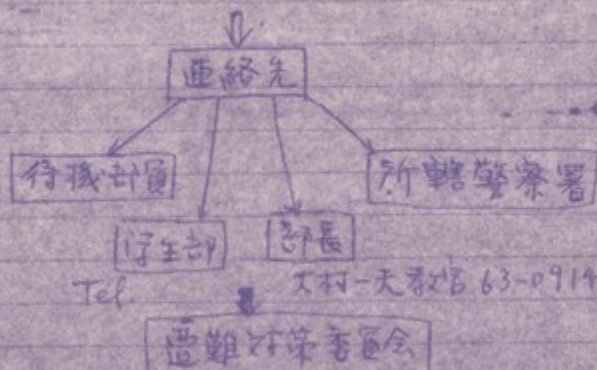 連絡先
待機部員
所轄警察署
学生部
部長
Tel.
大村一夫教官 63-0914
遭難対策委員会